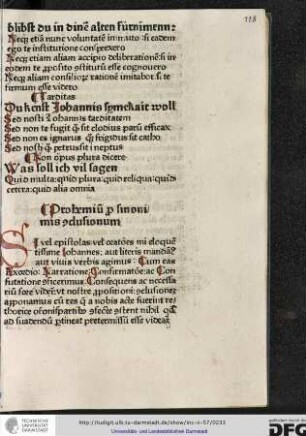 118
blibst du in dinē alten fürnimenn:
Neq̄ etiā nunc voluntatē immuto si eadem
ego te institutione conspexero
Neq̄ etiam aliam accipio deliberationē si in
eodem te ꝓposito cōstitutū esse cognouero
Neq̄ aliam consilioꝝ rationē imitabor si te
firmum esse videro
Tarditas
Du kenst Johannis somckait woll
Sed nosti Johannis tarditatem
Sed non te fugit ꝙ sit clodius parū efficax
Sed non es ignarus ꝙ frigidus sit catho
Sed nosti ꝙ petrus sit ineptus
Non opus plura dicere
Was soll ich vil sagen
Quid multa: quid plura: quid reliqua: quid
cetera: quid alia omnia
Prohemiū ꝓ sinoni
mis ꝯclusionum
Si vel epistolas vel oratōes mi eloquē
tissime Johannes: aut literis mandam⁹
aut viua verbis agimus: Cum eas
Exordio: Narratione: Confirmatōe: ac Con
futatione effecerimus: Consequens ac necessa
riū fore videt̄: vt nostre ꝓpositioni: ꝯclusionez
apponamus
ad suadendū ꝑtineat pretermissū esse videat̄
http://tudigit.ulb.tu-darmstadt.de/show/inc-ii-57/0233
Universitäts- und Landesbibliothek Darmstadt
TECHNISCHE
UNIVERSITÄT
DARMSTADT
DFG